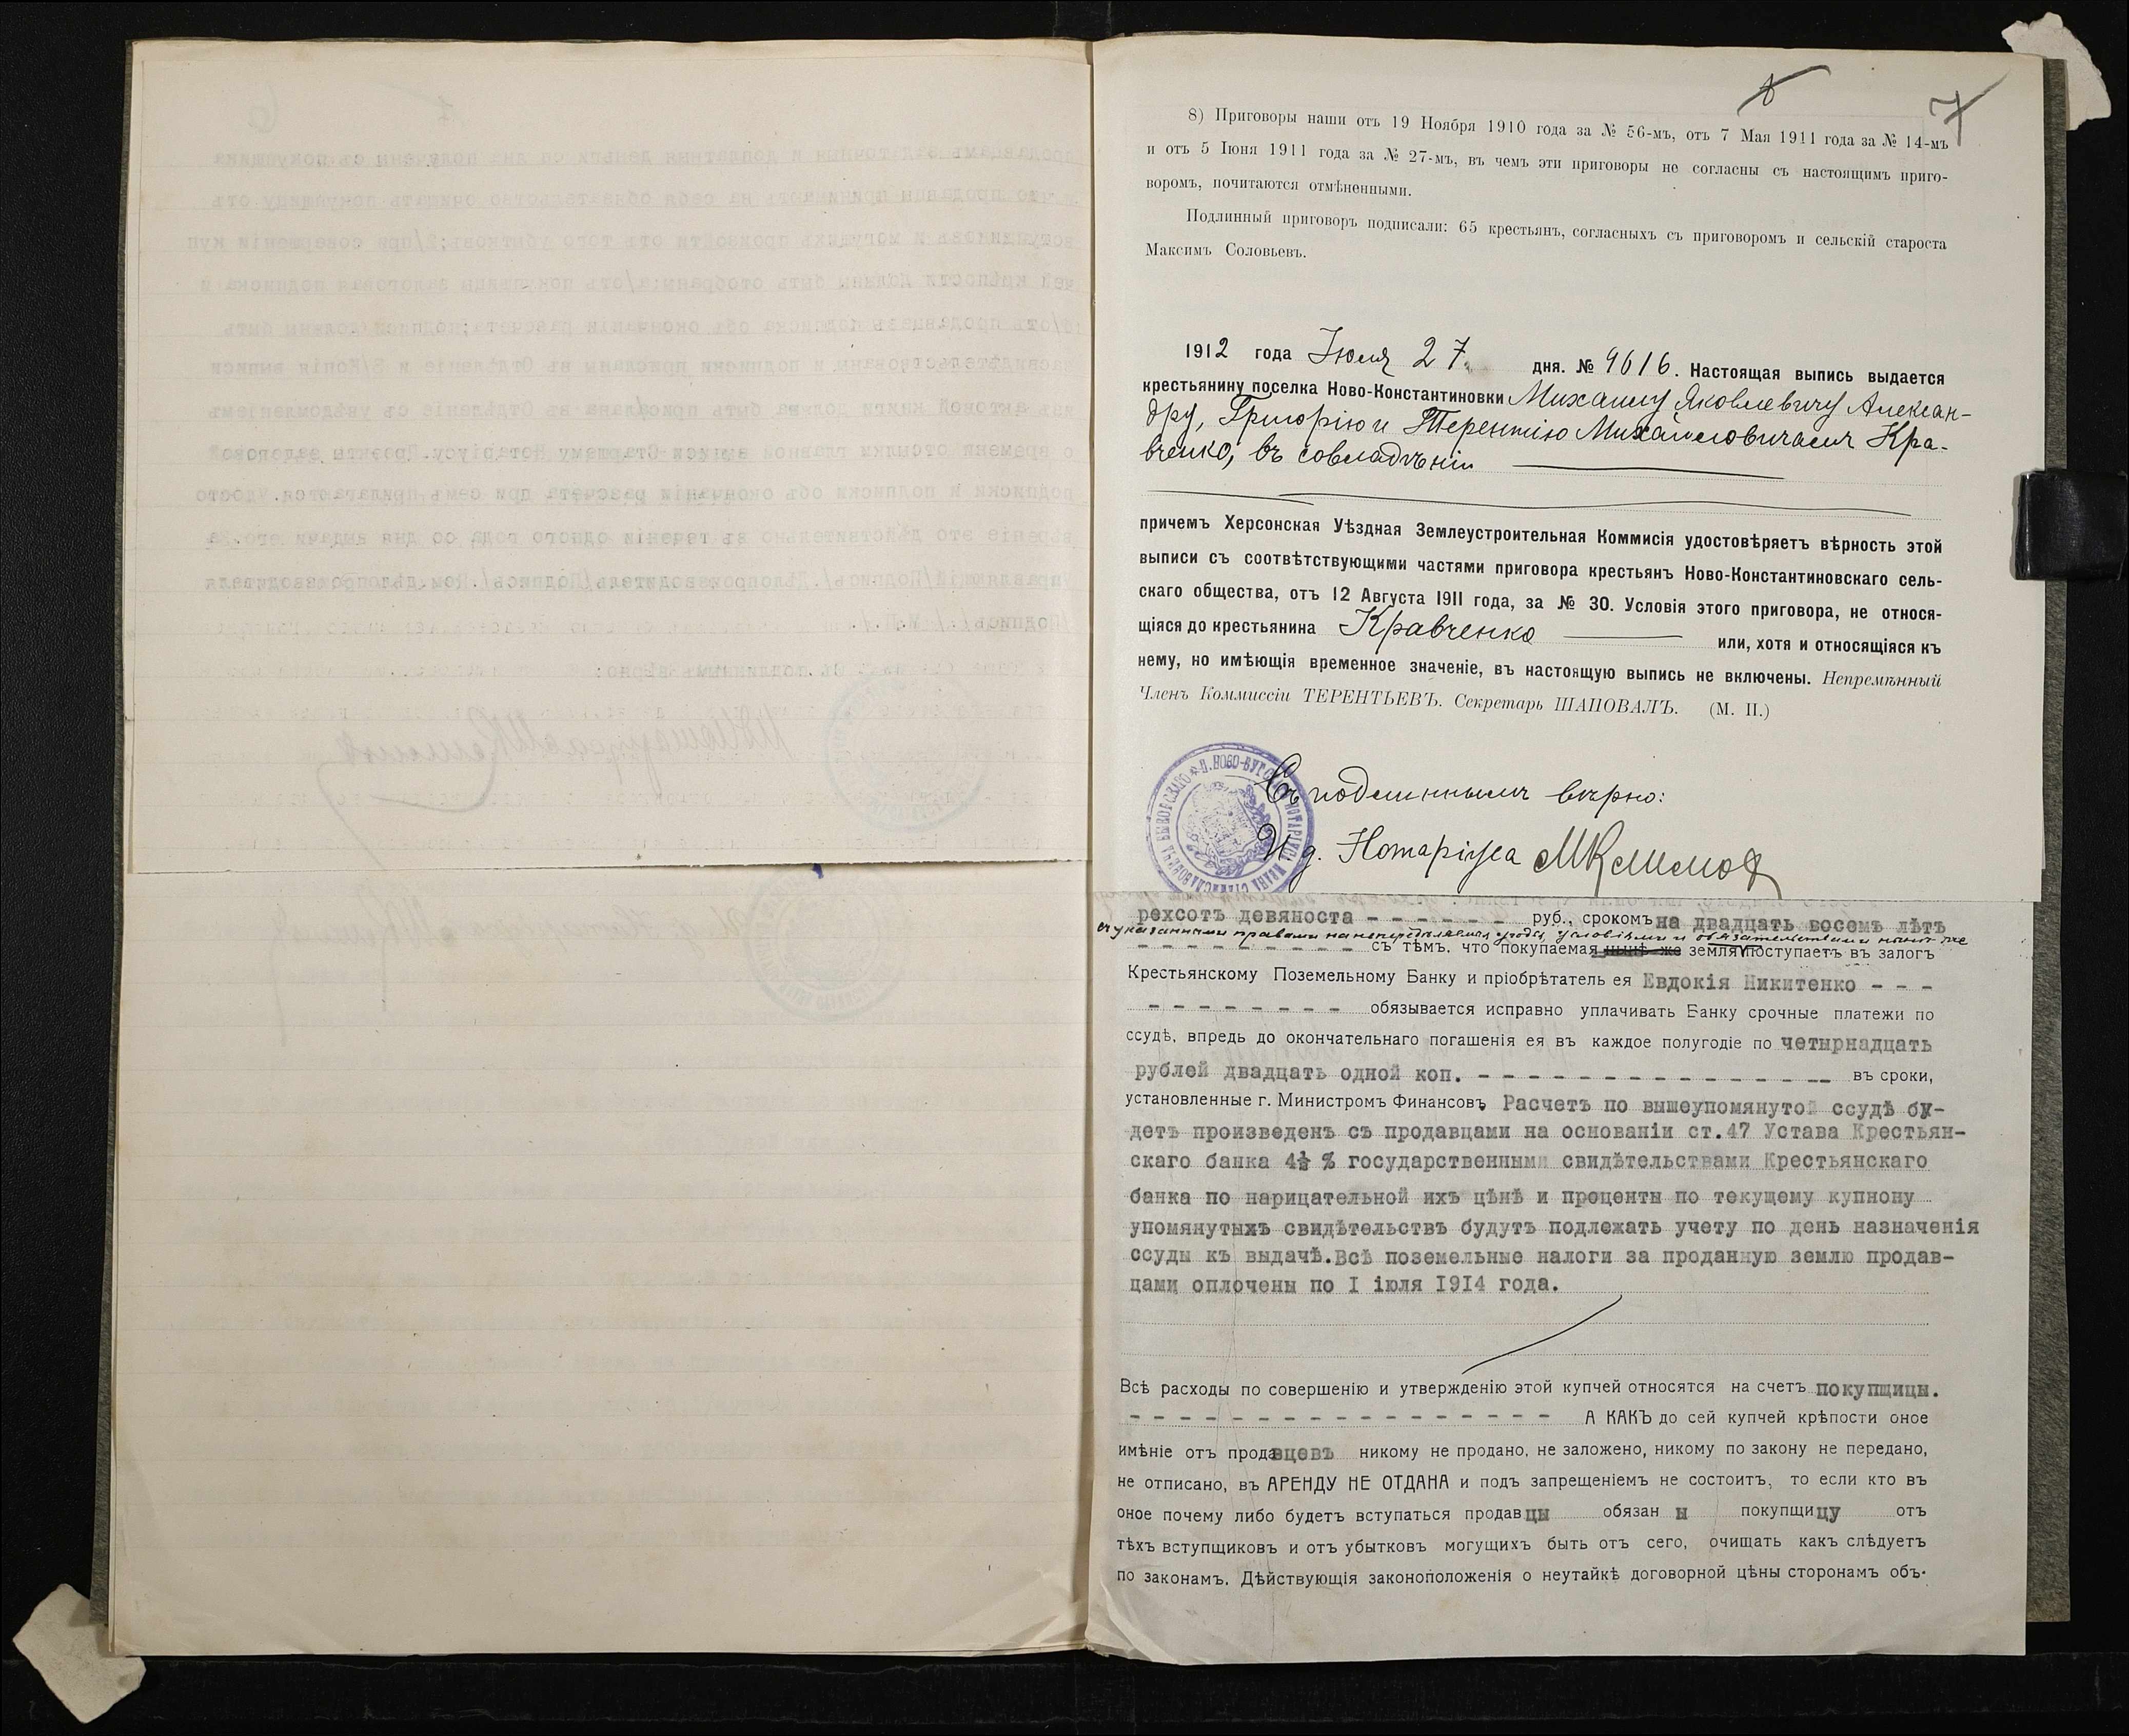 8
7
8) Приговоры наши отъ 19 Ноября 1910 года за № 56-мъ, отъ 7 Мая 1911 года за № 14-мъ
и отъ 5 Іюня 1911 года за № 27-мъ, въ чемъ эти приговоры не согласны съ настоящимъ приго-
воромъ, почитаются отмѣненными.
Подлинный приговоръ подписали: 65 крестьянъ, согласныхъ съ приговоромъ и сельскій староста
Максимъ Соловьевъ.
1912 года Іюля 27 дня. № 9616. Настоящая выпись выдается
крестьянину поселка Ново-Константиновки Михаилу Яковлевичу Алексан-
дру, Григорію и Терентію Михайловичамъ Кра-
вченко, въ совладѣніи
причемъ Херсонская Уѣздная Землеустроительная Коммисія удостовѣряетъ вѣрность этой
выписи съ соотвѣтствующими частями приговора крестьянъ Ново-Константиновскаго сель-
скаго общества, отъ 12 Августа 1911 года, за № 30. Условія этого приговора, не относя-
щіяся до крестьянина Кравченко или, хотя и относящіяся къ
нему, но имѣющія временное значеніе, въ настоящую выпись не включены. Непремѣнный
Членъ Коммиссіи ТЕРЕНТЬЕВЪ. Секретарь ШАПОВАЛЪ. (М. П.)
Съ подлиннымъ вѣрно:
И д. Нотаріуса МКлимов
рехсотъ девяноста - - - - - - руб., срокомъ на двадцать восемь лѣтъ
съ указанными правами на неопредѣляемыя угодья, условіями и обязательствами нынѣ же
- - - - - - - - - съ тѣмъ, что покупаемая нынѣ же земля поступаетъ въ залогъ
Крестьянскому Поземельному Банку и пріобрѣтатель ея Евдокія Никитенко - - -
- - - - - - - - обязывается исправно уплачивать Банку срочные платежи по
ссудѣ, впредь до окончательнаго погашенія ея въ каждое полугодіе по четырнадцать
рублей двадцать одной коп. - - - - - - - - - - - - - - - въ сроки,
установленные г. Министромъ Финансовъ. Расчетъ по вышеупомянутой ссудѣ бу-
детъ произведенъ съ продавцами на основаніи ст.47 Устава Крестьян-
скаго банка 4½ % государственными свидѣтельствами Крестьянскаго
банка по нарицательной ихъ цѣнѣ и проценты по текущему купону
упомянутыхъ свидѣтельствъ будутъ подлежать учету по день назначенія
ссуды къ выдачѣ.Всѣ поземельные налоги за проданную землю продав-
цами оплочены по I іюля 1914 года.
Всѣ расходы по совершенію и утвержденію этой купчей относятся на счетъ покупщицы.
- - - - - - - - - - - - - - - - - А КАКЪ до сей купчей крѣпости оное
имѣніе отъ продавцевъ никому не продано, не заложено, никому по закону не передано,
не отписано, въ АРЕНДУ НЕ ОТДАНА и подъ запрещеніемъ не состоитъ, то если кто въ
оное почему либо будетъ вступаться продавцы обязан ы покупщицу отъ
тѣхъ вступщиковъ и отъ убытковъ могущихъ быть отъ сего, очищать какъ слѣдуетъ
по законамъ. Дѣйствующія законоположенія о неутайкѣ договорной цѣны сторонамъ объ-